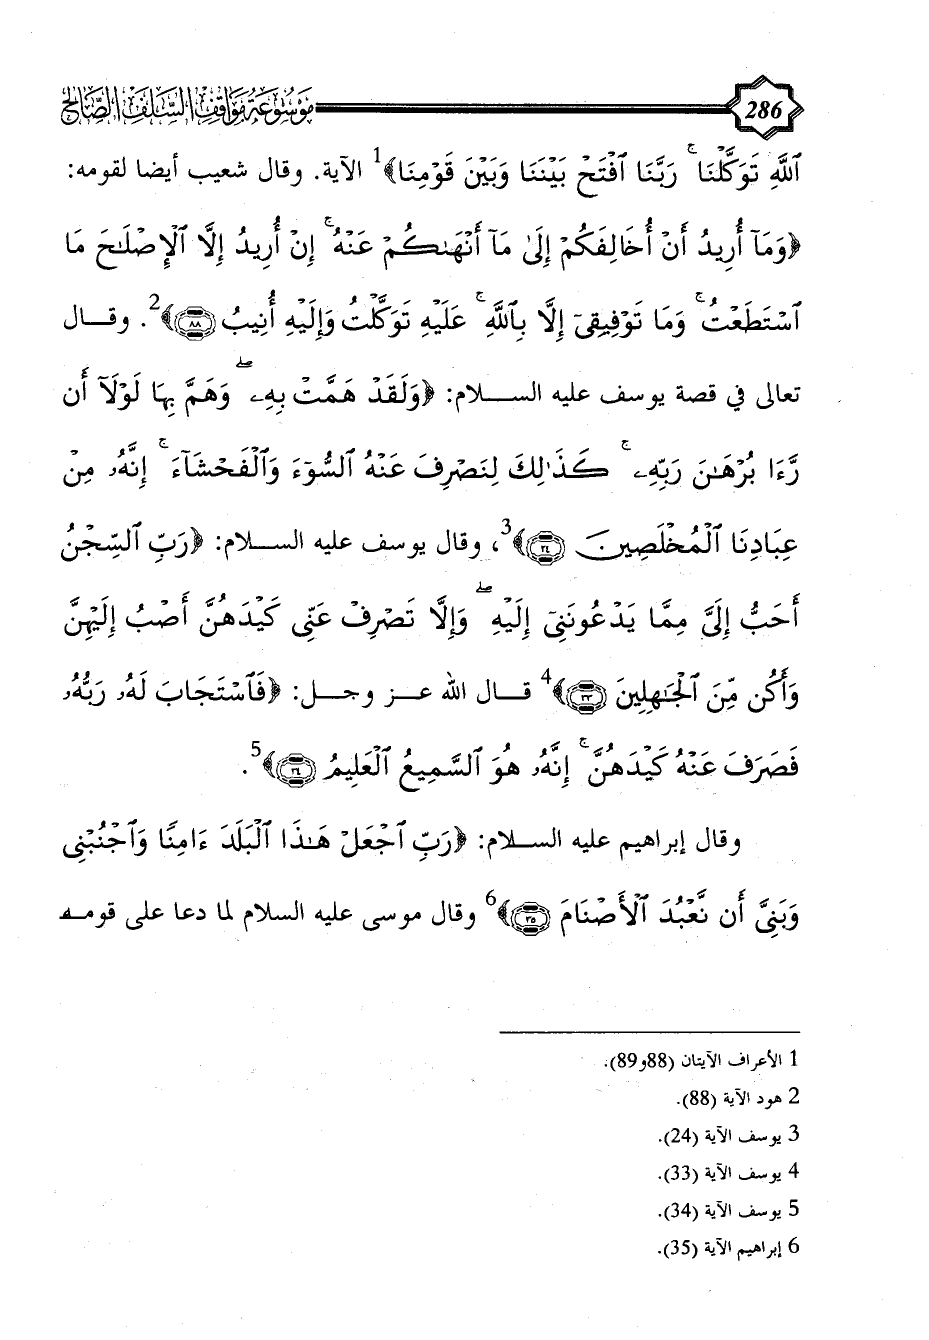 286 موسوعة مواقف السلف الصالح
ٱللَّهِ تَوَكَّلْنَا ۚ رَبَّنَا ٱفْتَحْ بَيْنَنَا وَبَيْنَ قَوْمِنَا﴾1 الآية. وقال شعيب أيضا لقومه:
﴿وَمَآ أُرِيدُ أَنْ أُخَالِفَكُمْ إِلَىٰ مَآ أَنْهَىٰكُمْ عَنْهُ ۚ إِنْ أُرِيدُ إِلَّا ٱلْإِصْلَٰحَ مَا
ٱسْتَطَعْتُ ۚ وَمَا تَوْفِيقِىٓ إِلَّا بِٱللَّهِ ۚ عَلَيْهِ تَوَكَّلْتُ وَإِلَيْهِ أُنِيبُ ٨٨﴾2. وقــال
تعالى في قصة يوسف عليه الســـلام: ﴿وَلَقَدْ هَمَّتْ بِهِۦ ۖ وَهَمَّ بِهَا لَوْلَآ أَن
رَّءَا بُرْهَٰنَ رَبِّهِۦ ۚ كَذَٰلِكَ لِنَصْرِفَ عَنْهُ ٱلسُّوٓءَ وَٱلْفَحْشَآءَ ۚ إِنَّهُۥ مِنْ
عِبَادِنَا ٱلْمُخْلَصِينَ ٢٤﴾3، وقال يوسف عليه الســـلام: ﴿رَبِّ ٱلسِّجْنُ
أَحَبُّ إِلَىَّ مِمَّا يَدْعُونَنِىٓ إِلَيْهِ ۖ وَإِلَّا تَصْرِفْ عَنِّى كَيْدَهُنَّ أَصْبُ إِلَيْهِنَّ
وَأَكُن مِّنَ ٱلْجَٰهِلِينَ ٣٣﴾4 قــال الله عــز وجــل: ﴿فَٱسْتَجَابَ لَهُۥ رَبُّهُۥ
فَصَرَفَ عَنْهُ كَيْدَهُنَّ ۚ إِنَّهُۥ هُوَ ٱلسَّمِيعُ ٱلْعَلِيمُ ٣٤﴾5.
وقال إبراهيم عليه الســـلام: ﴿رَبِّ ٱجْعَلْ هَٰذَا ٱلْبَلَدَ ءَامِنًا وَٱجْنُبْنِى
وَبَنِىَّ أَن نَّعْبُدَ ٱلْأَصْنَامَ ٣٥﴾6 وقال موسى عليه السلام لما دعا على قومــه
1 الأعراف الآيتان (88و89).
2 هود الآية (88).
3 يوسف الآية (24).
4 يوسف الآية (33).
5 يوسف الآية (34).
6 إبراهيم الآية (35).